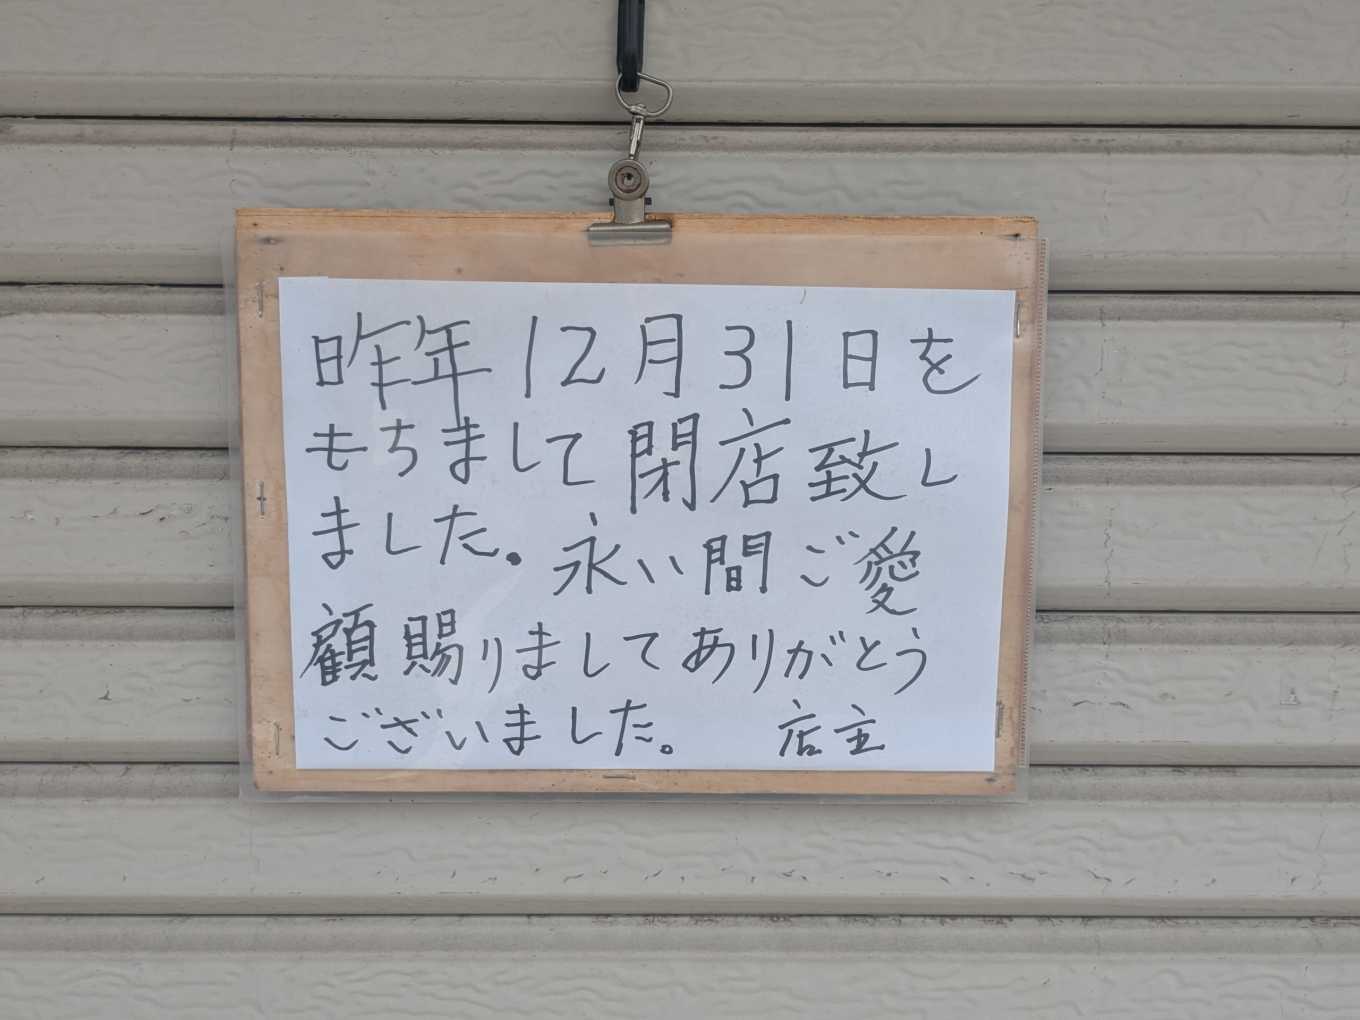 昨年12月31日を
もちまして閉店致し
ました。永い間ご愛
顧賜りましてありがとう
ございました。 店主